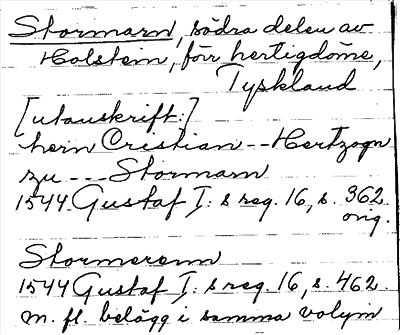 Stormarn, södra delen av
Holstein, förr hertigdöme,
Tyskland
[utanskrift:]
hern Cristian -- Hertzogn
zu --- Stormarn
1544 Gustaf I:s reg. 16, s. 362.
orig.
Stormerenn
1544 Gustaf I:s reg. 16, s. 462.
m. fl. belägg i samma volym